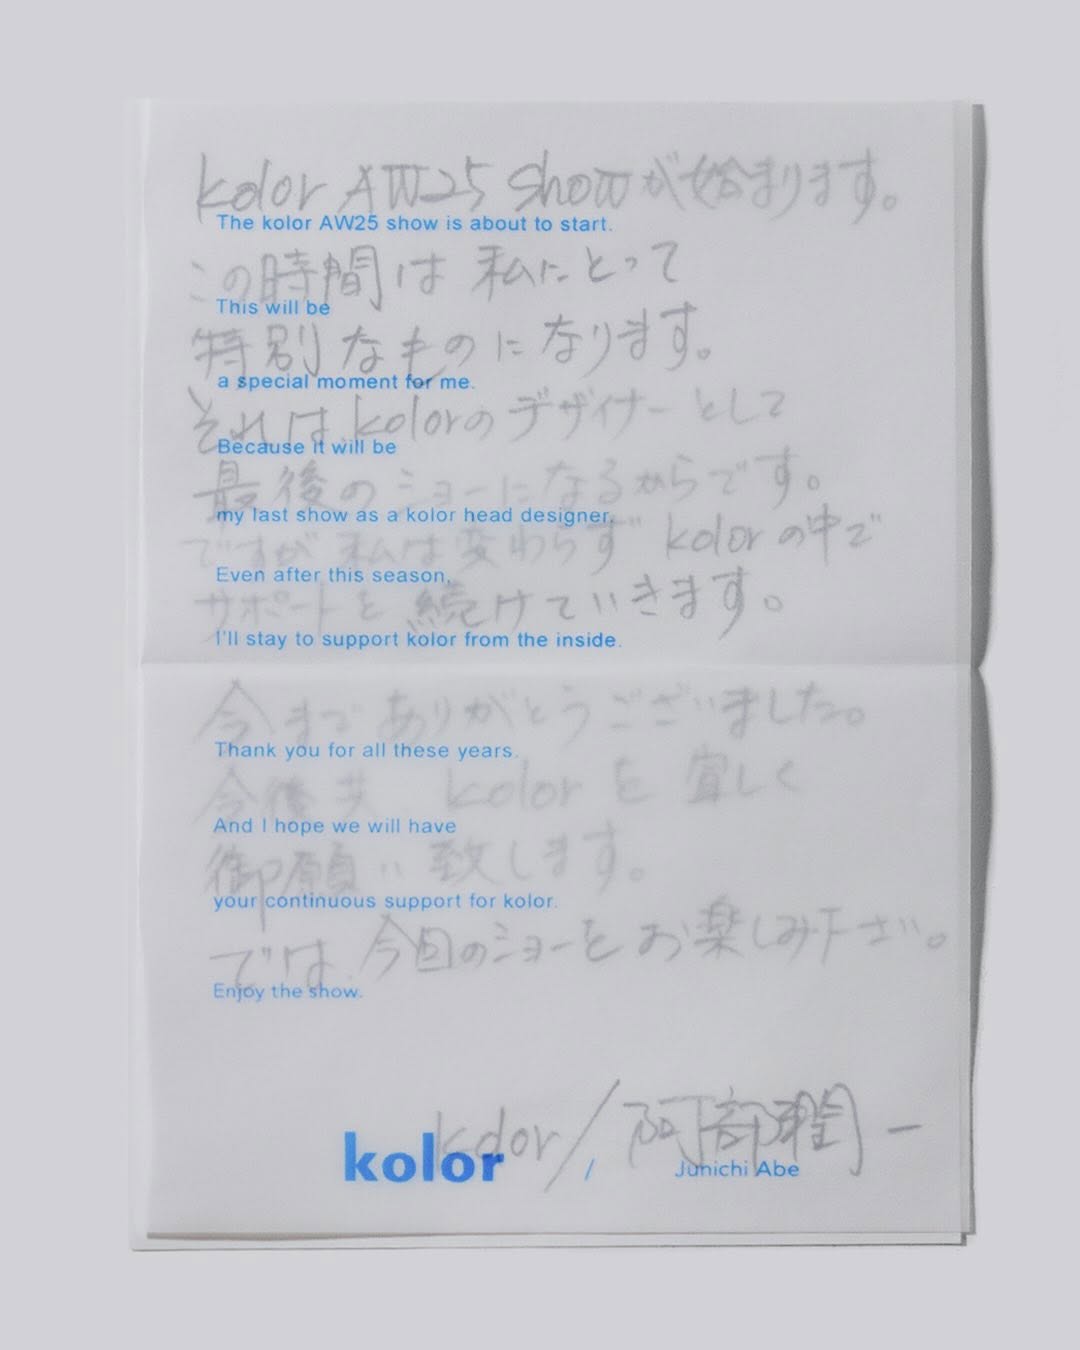 kolor AW25 showが始まります。
The kolor AW25 show is about to start.
この時間は 私にとって
This will be
特別なものになります。
a special moment for me.
それは、kolorのデザイナーとして
Because it will be
最後のショーになるからです。
my last show as a kolor head designer.
ですが 私は変わらず kolorの中で
Even after this season,
サポートを続けていきます。
I'll stay to support kolor from the inside.
今まで ありがとうございました。
Thank you for all these years.
今後共、kolorを宜しく
And I hope we will have
御願い致します。
your continuous support for kolor.
では、今回のショーをお楽しみ下さい。
Enjoy the show.
kolor / 阿部潤一
kolor / Junichi Abe